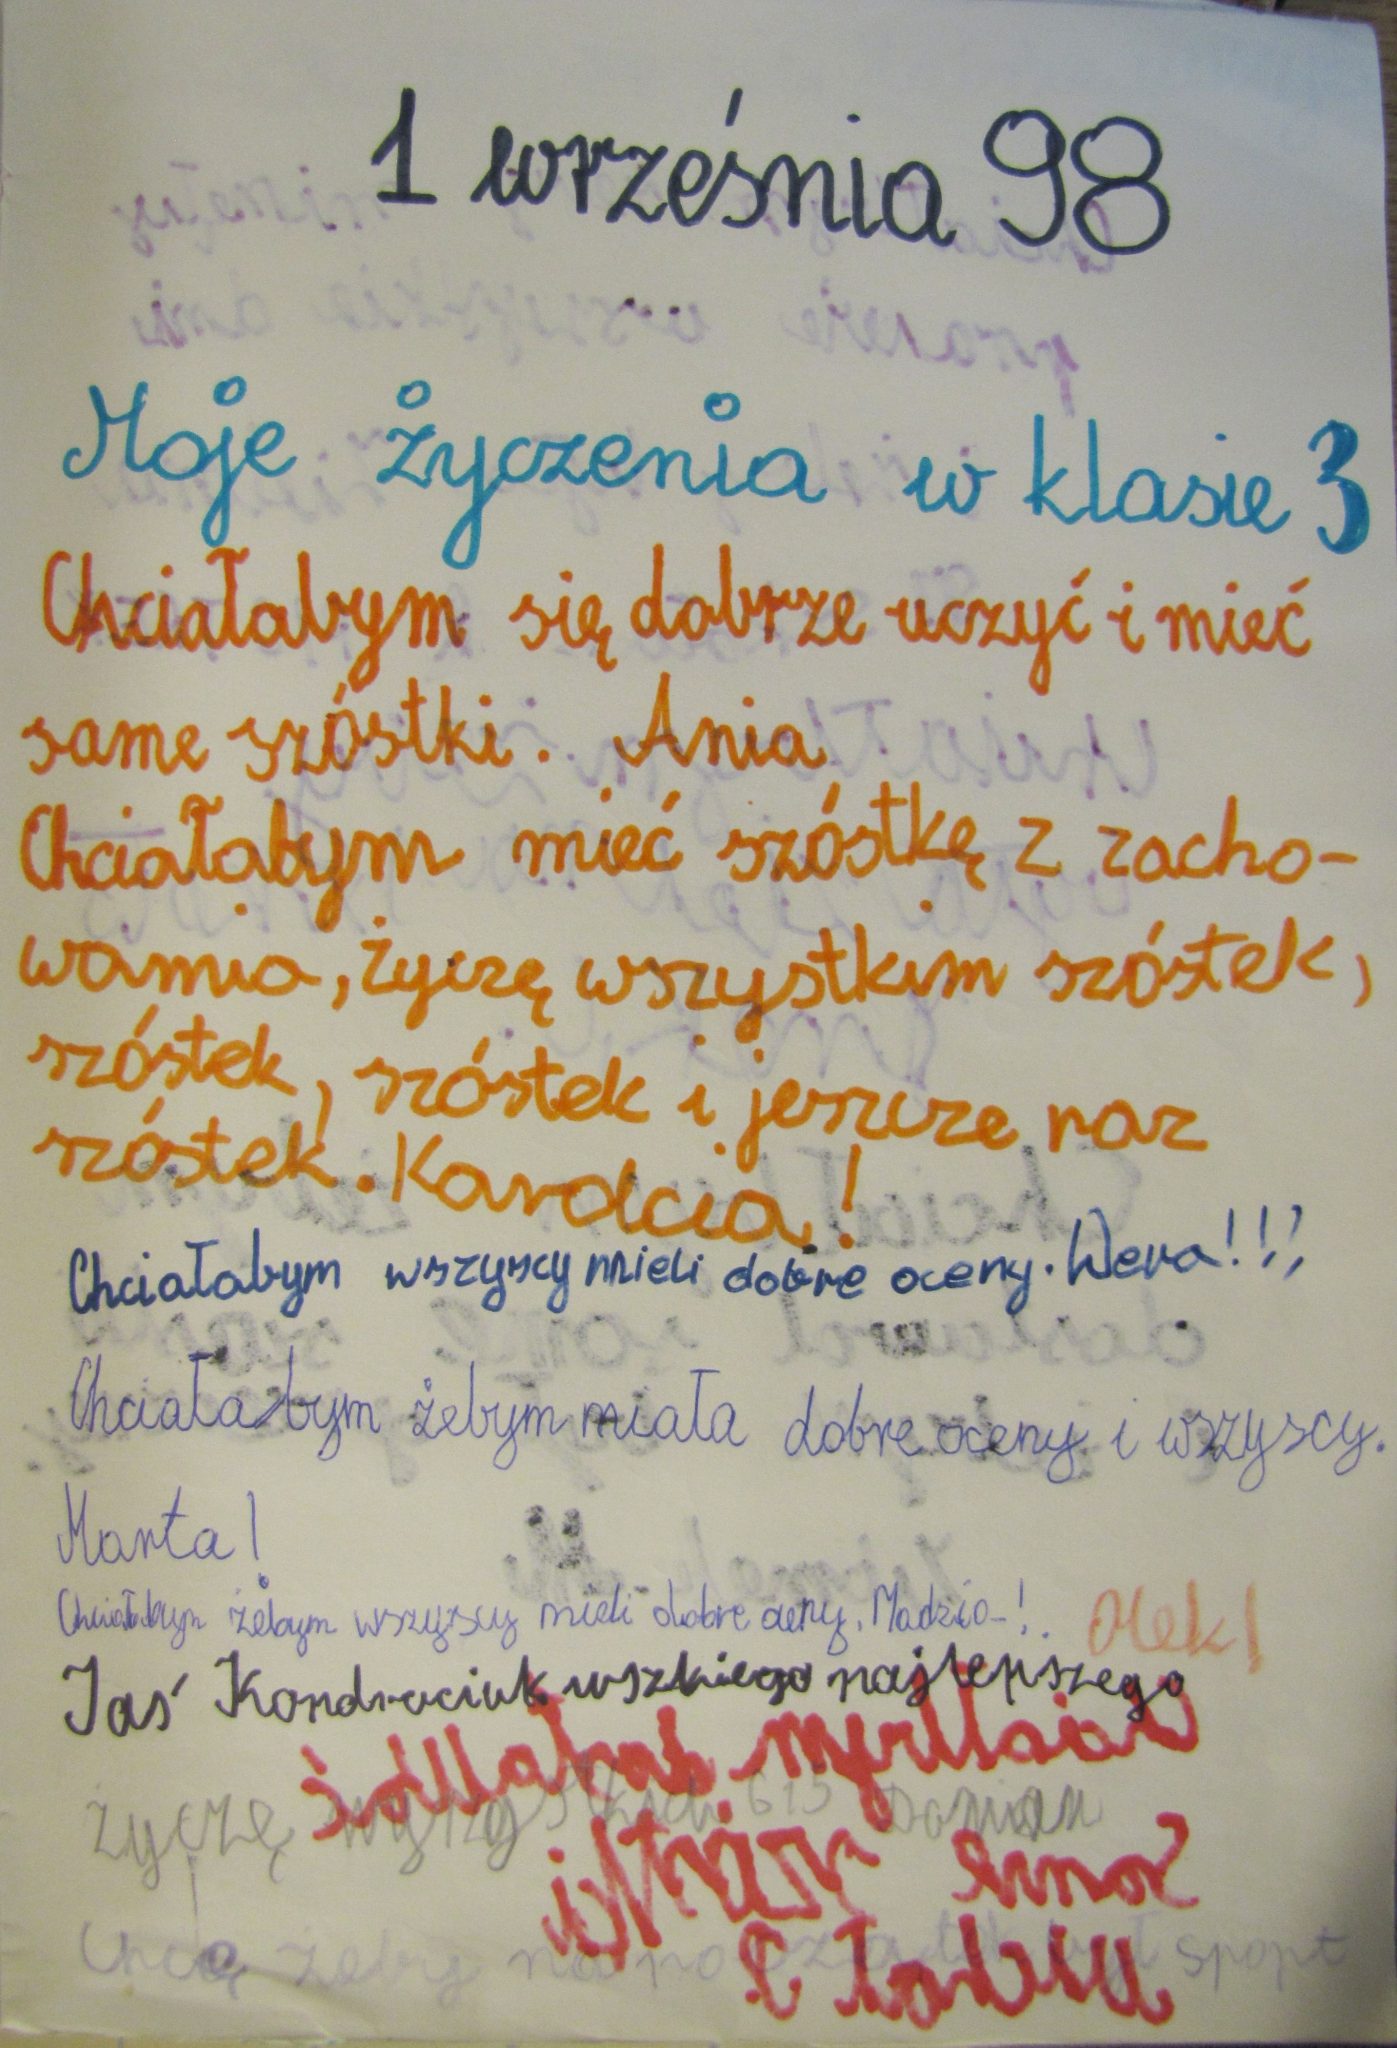 1 września 98
Moje życzenia w klasie 3
Chciałabym się dobrze uczyć i mieć
same szóstki. Ania
Chciałabym mieć szóstkę z zacho-
wania, życzę wszystkim szóstek,
szóstek, szóstek i jeszcze raz
szóstek. Karolcia!
Chciałabym wszyscy mieli dobre oceny. Wera!!!
Chciałabym żebym miała dobre oceny i wszyscy.
Marta!
Chciałabym żebym wszyscy mieli dobre oceny. Madzia-!. Olek!
Jaś Kondraciuk wszkiego najlepszego
życzę 6 i 5 Damian
Chcę żeby na był sport